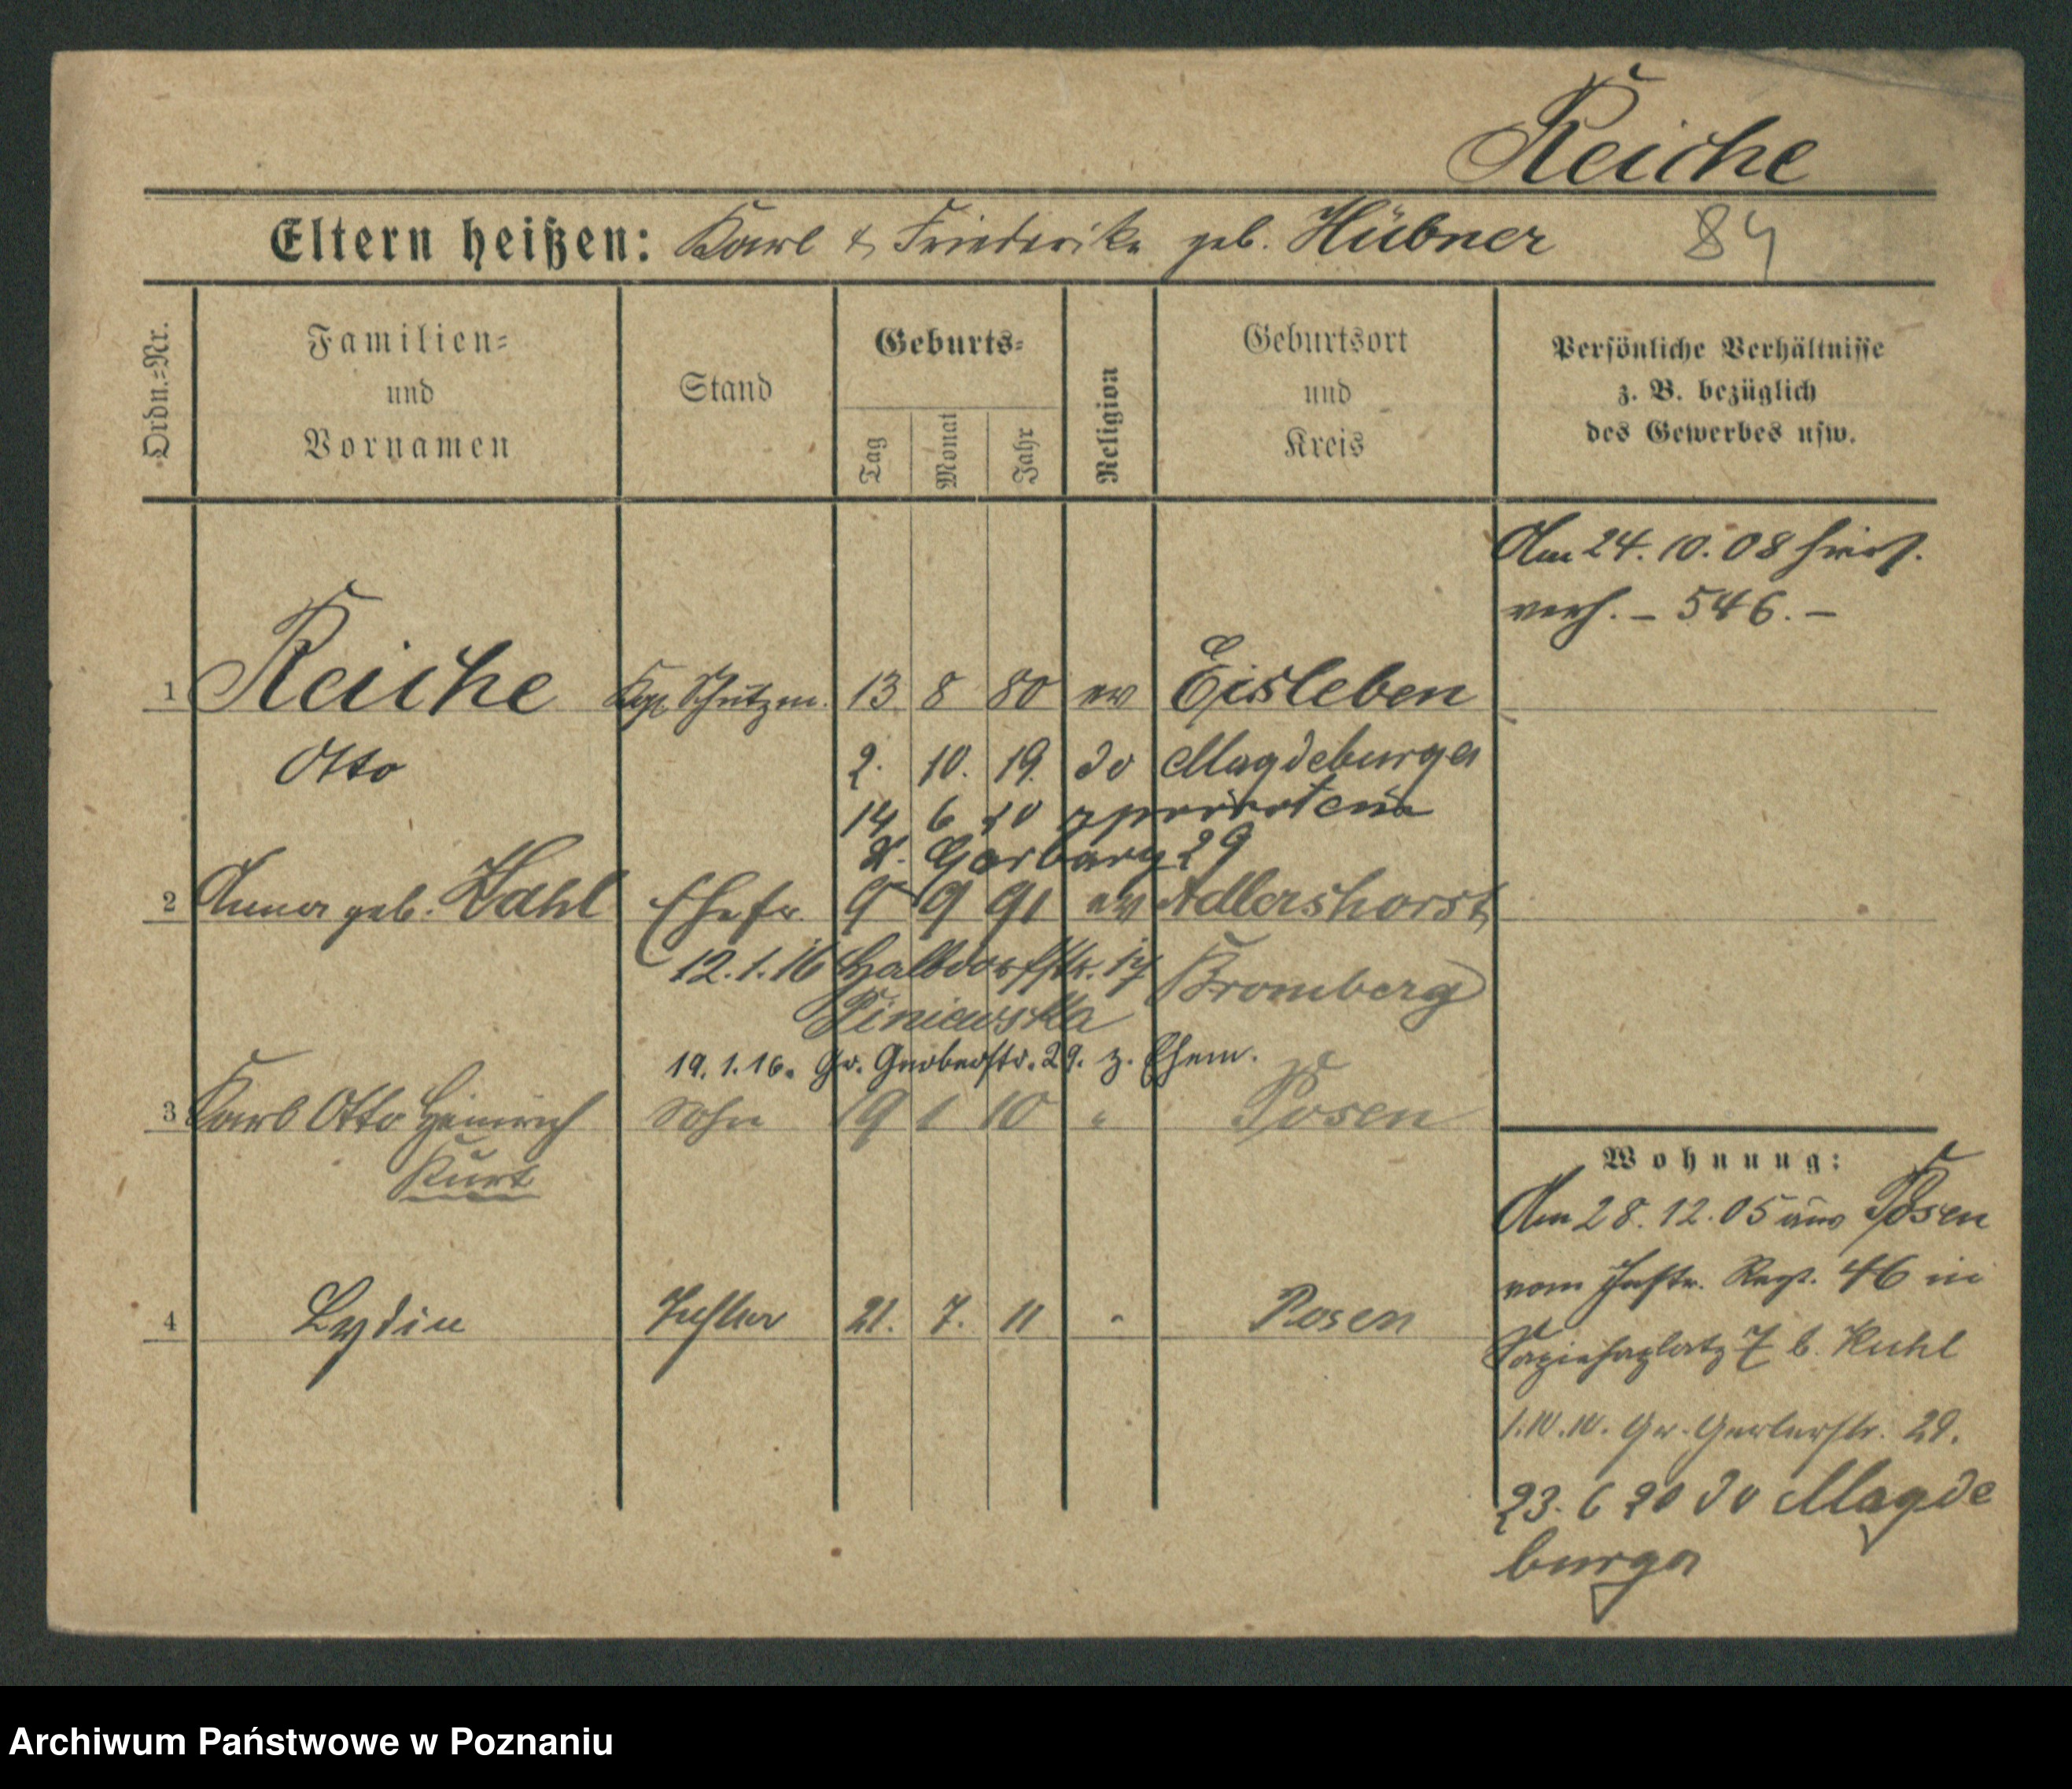 Reiche
Eltern heißen: Karl & Friederike geb. Hübner 84
Ordn.-Nr.
Familien- und Vornamen
Stand
Geburts-
Tag
Monat
Jahr
Religion
Geburtsort und Kreis
Persönliche Verhältnisse
z. B. bezüglich
des Gewerbes usw.
Am 24. 10. 08 hier
verh. – 546. –
1 Reiche Kgl. Schutzm. 13 8 80 ev Eisleben
Otto 2. 10. 19. do Magdeburga
14 6 20 z powrotem
W. Garbary 29
2 Anna geb. Wahl Ehefr. 9 9 91 ev Adlershorst
12.1.16 Halbdorfstr. 17 Bromberg
Piniewska
19.1.16. Gr. Gerberstr. 29. z. Ehem.
3 Karl Otto Heinrich Sohn 19 1 10 " Posen
Kurt
4 Lydia Tochter 21. 7. 11 " Posen
Wohnung:
Am 28. 12. 05 aus Posen
vom Inftr. Regt. 46 in
Sapiehaplatz 7 b. Kuhl
1.10.10. Gr. Gerberstr. 29.
23. 6 20 do Magde
burga
Archiwum Państwowe w Poznaniu